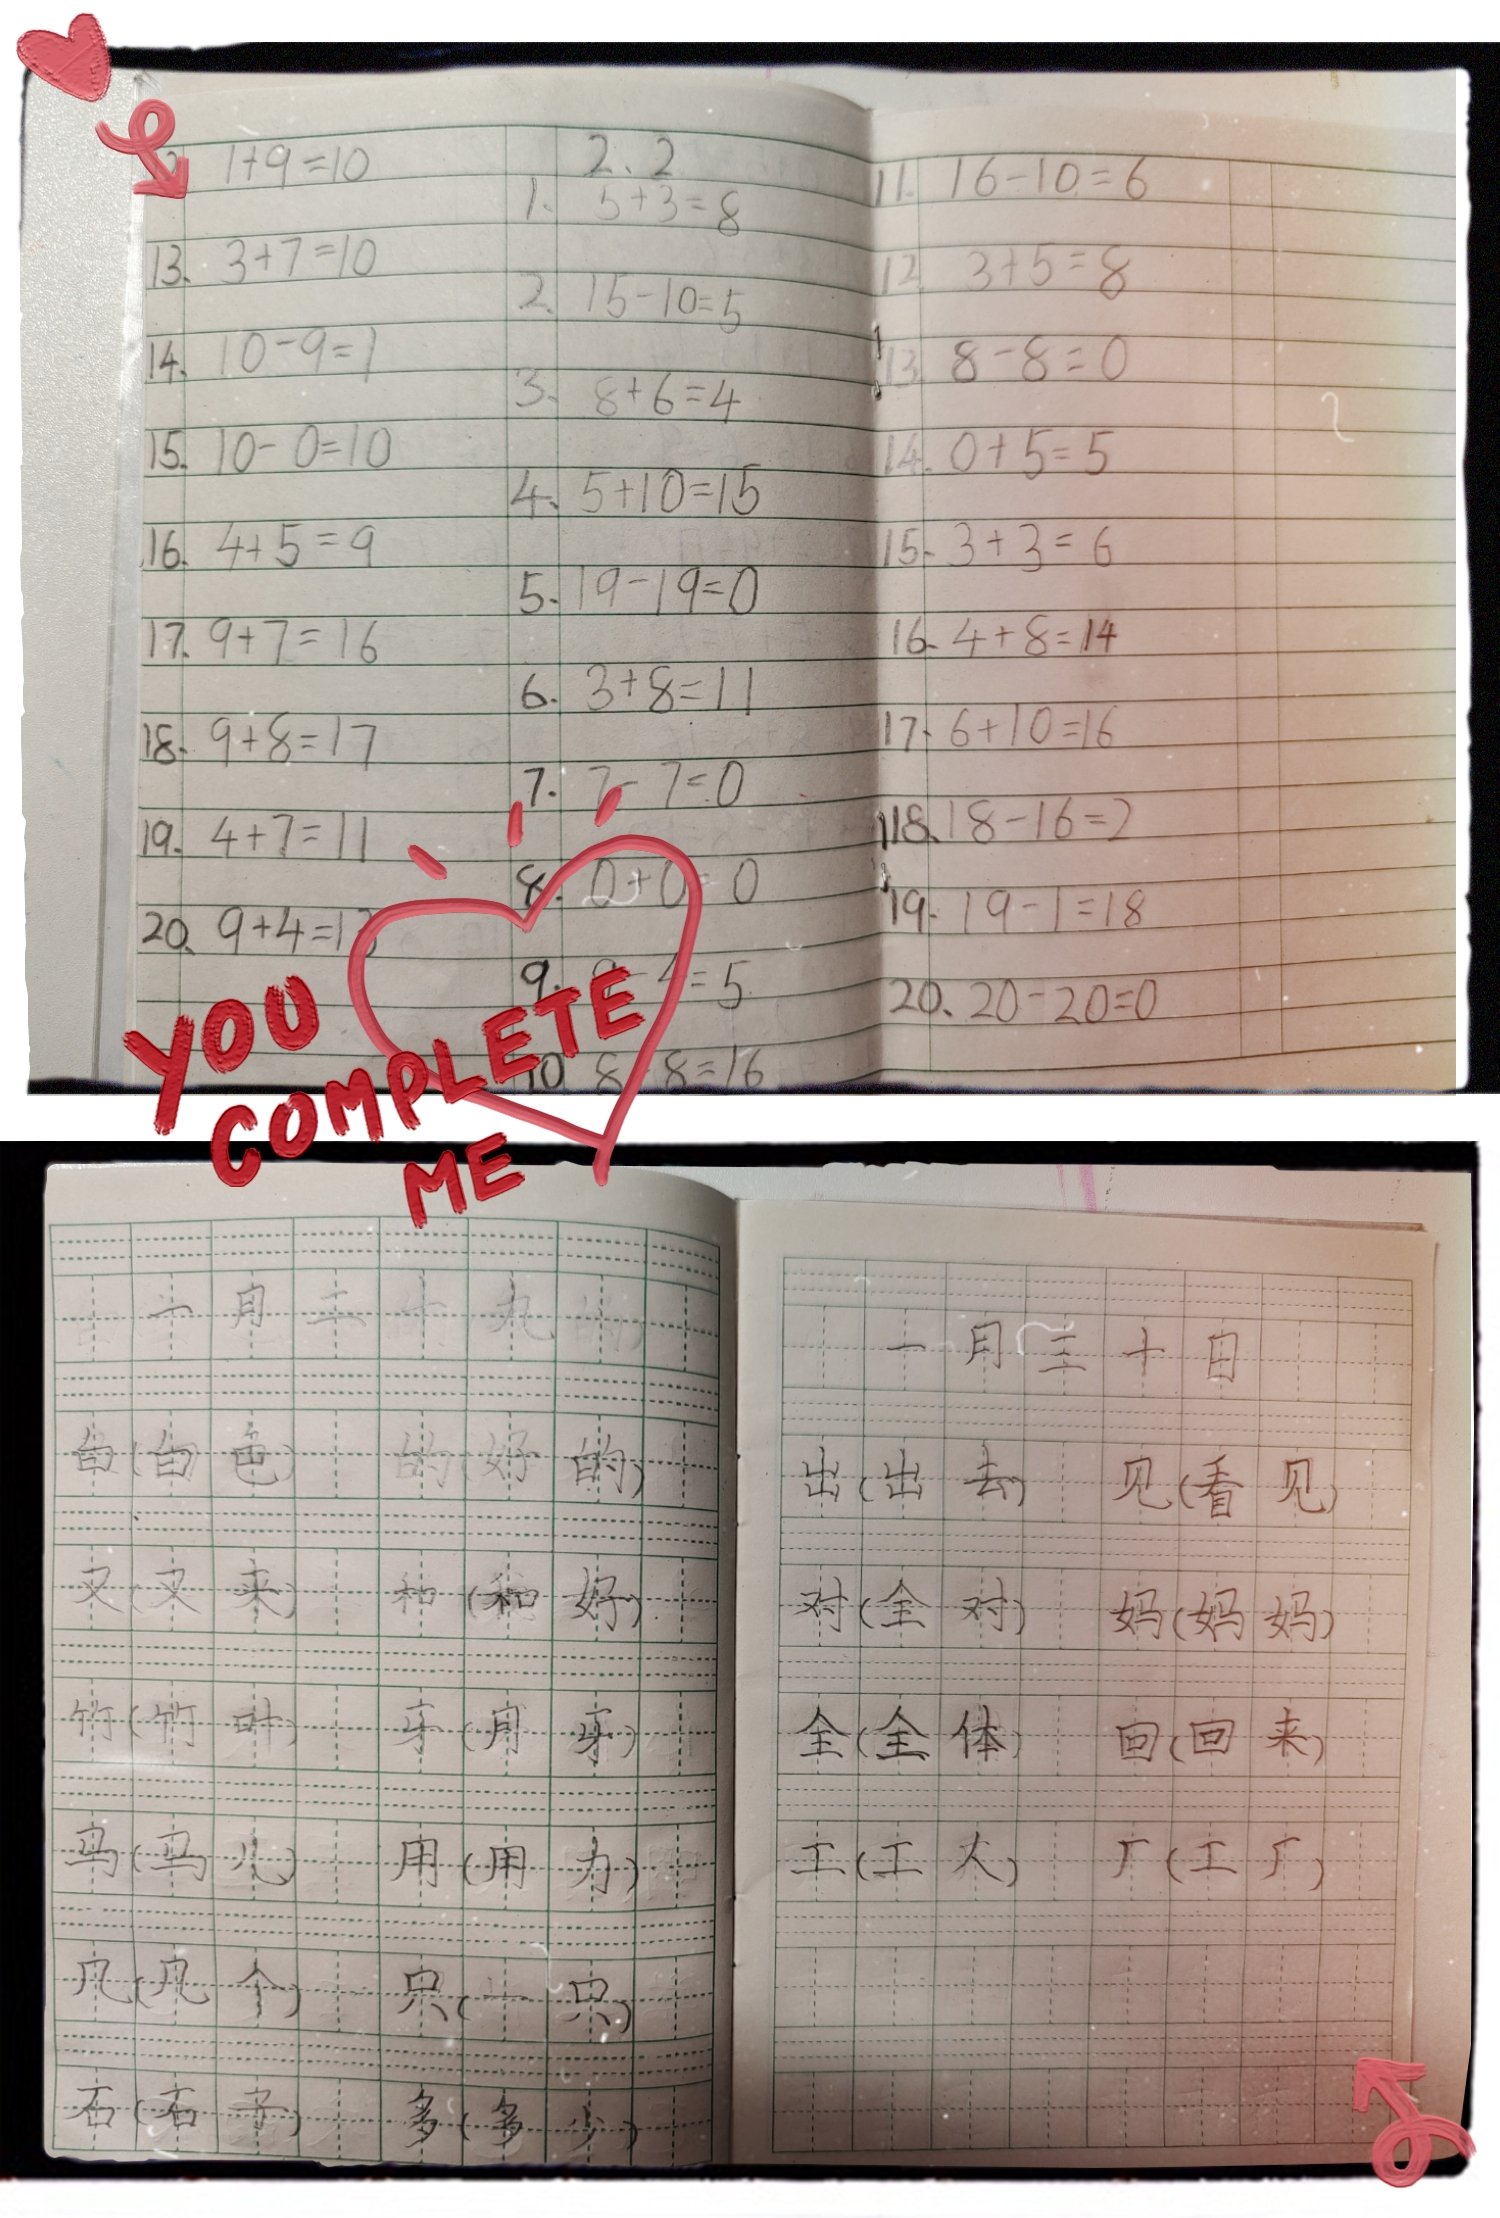 1+9=10
13. 3+7=10
14. 10-9=1
15. 10-0=10
16. 4+5=9
17. 9+7=16
18. 9+8=17
19. 4+7=11
20. 9+4=13
2.2
1. 5+3=8
2. 15-10=5
3. 8+6=4
4. 5+10=15
5. 19-19=0
6. 3+8=11
7. 7-7=0
8. 0+0=0
9. 9-4=5
10 8+8=16
11. 16-10=6
12 3+5=8
13 8-8=0
14. 0+5=5
15. 3+3=6
16. 4+8=14
17. 6+10=16
18. 18-16=2
19. 19-1=18
20. 20-20=0
YOU
COMPLETE
ME
一月二十九
白(白色) 的(好的)
又(又来) 和(和好)
竹(竹叶) 牙(月牙)
马(马儿) 用(用力)
几(几个) 只(一只)
石(石子) 多(多少)
一月三十日
出(出去) 见(看见)
对(全对) 妈(妈妈)
全(全体) 回(回来)
工(工人) 厂(工厂)